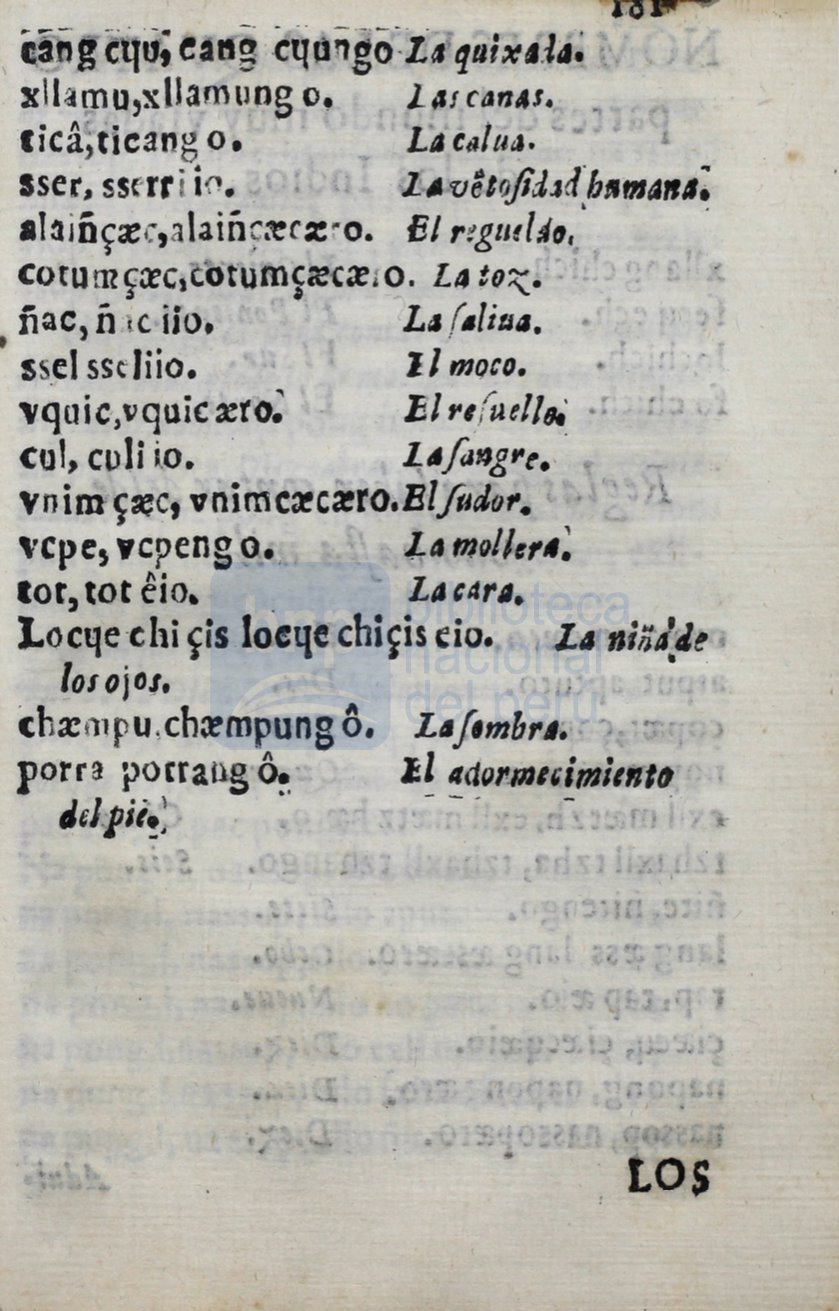 181
cang cɥu, cang cɥungo La quixala.
xllamu, xllamung o. Las canas.
ticâ, ticang o. La calua.
sser, sserr io. La vẽtosidad humana.
alaiñçæc, alaiñcæcæro. El regueldo.
cotumçæc, cotumçæcæro. La tox.
ñac, ñac iio. La saliua.
ssel sseliio. El moco.
vquic, vquic æro. El resuello.
cul, culi io. La sangre.
vnim çæc, vnimcæcæro. El sudor.
vcpe, vcpeng o. La mollera.
tot, tot êio. La cara.
Locɥe chi çis locɥe chiçis eio. La niña de
los ojos.
chæmpu, chæmpung ô. La sombra.
porra porrang ô. El adormecimiento
del pie.
LOS
biblioteca
nacional
del perú